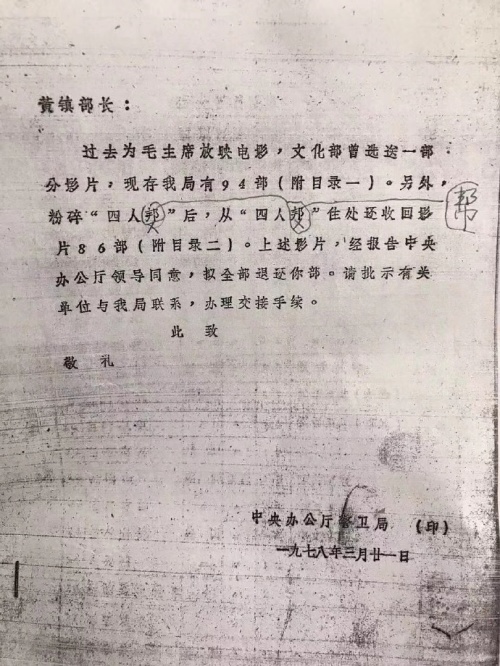 黄镇部长：
过去为毛主席放映电影，文化部曾选送一部
分影片，现存我局有94部（附目录一）。另外，
粉碎“四人邦”后，从“四人邦”住处还收回影
帮
片86部（附目录二）。上述影片，经报告中央
办公厅领导同意，拟全部退还你部。请批示有关
单位与我局联系，办理交接手续。
此致
敬礼
中央办公厅警卫局（印）
一九七八年三月廿一日